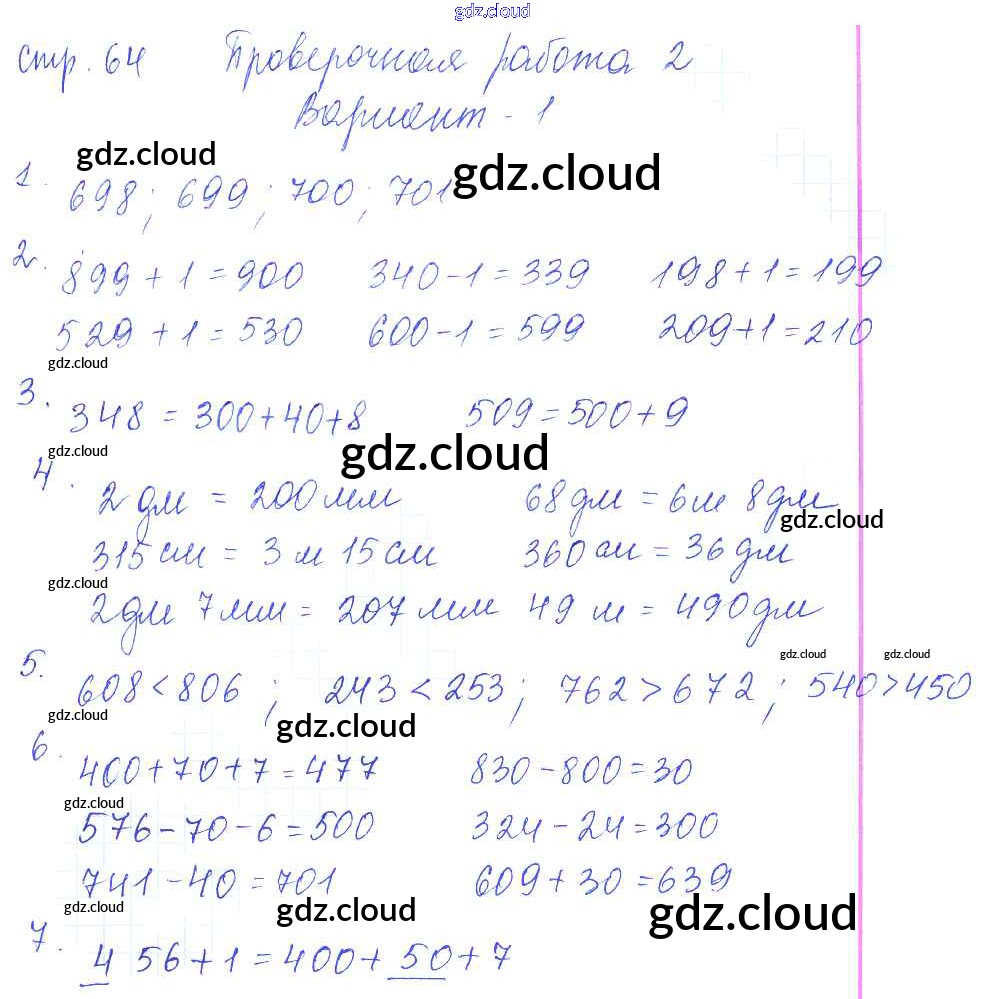 gdz.cloud
стр. 64 Проверочная работа 2
Вариант - 1
gdz.cloud gdz.cloud
1. 698; 699; 700; 701
2. 899 + 1 = 900 340 - 1 = 339 198 + 1 = 199
529 + 1 = 530 600 - 1 = 599 209 + 1 = 210
gdz.cloud
3. 348 = 300 + 40 + 8 509 = 500 + 9
gdz.cloud gdz.cloud
4. 2 дм = 200 мм 68 дм = 6 м 8 дм
gdz.cloud
315 см = 3 м 15 см 360 см = 36 дм
gdz.cloud
2 дм 7 мм = 207 мм 49 м = 490 дм
gdz.cloud gdz.cloud
5. 608 < 806; 243 < 253; 762 > 672; 540 > 450
gdz.cloud gdz.cloud
6. 400 + 70 + 7 = 477 830 - 800 = 30
gdz.cloud
576 - 70 - 6 = 500 324 - 24 = 300
741 - 40 = 701 609 + 30 = 639
gdz.cloud gdz.cloud gdz.cloud
7. 4 56 + 1 = 400 + 50 + 7